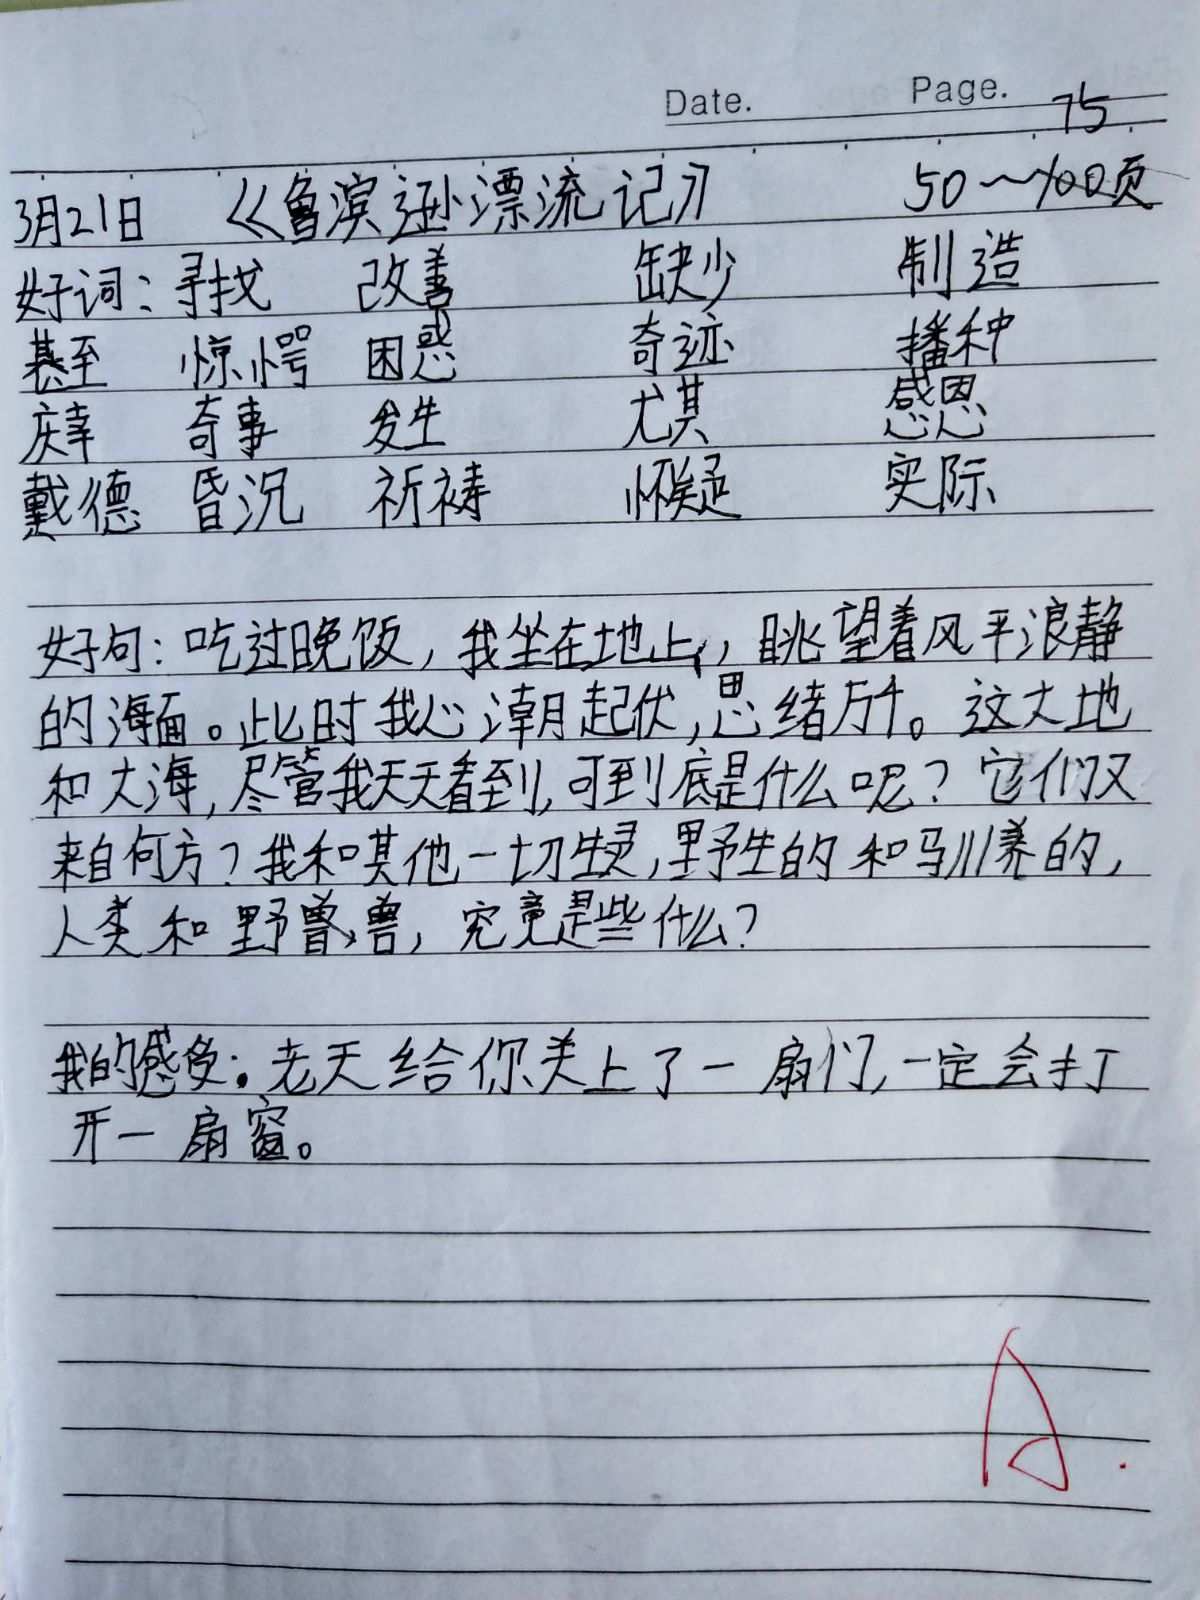 Date. Page. 75
3月21日 《鲁滨逊漂流记》 50~100页
好词：寻找 改善 缺少 制造
甚至 惊愕 困惑 奇迹 播种
庆幸 奇事 发生 尤其 感恩
戴德 昏沉 祈祷 怀疑 实际
好句：吃过晚饭，我坐在地上，眺望着风平浪静
的海面。此时我心潮起伏，思绪万千。这大地
和大海，尽管我天天看到，可到底是什么呢？它们又
来自何方？我和其他一切生灵，野生的和驯养的，
人类和野兽，究竟是些什么？
我的感受：老天给你关上了一扇们，一定会打
开一扇窗。
A.